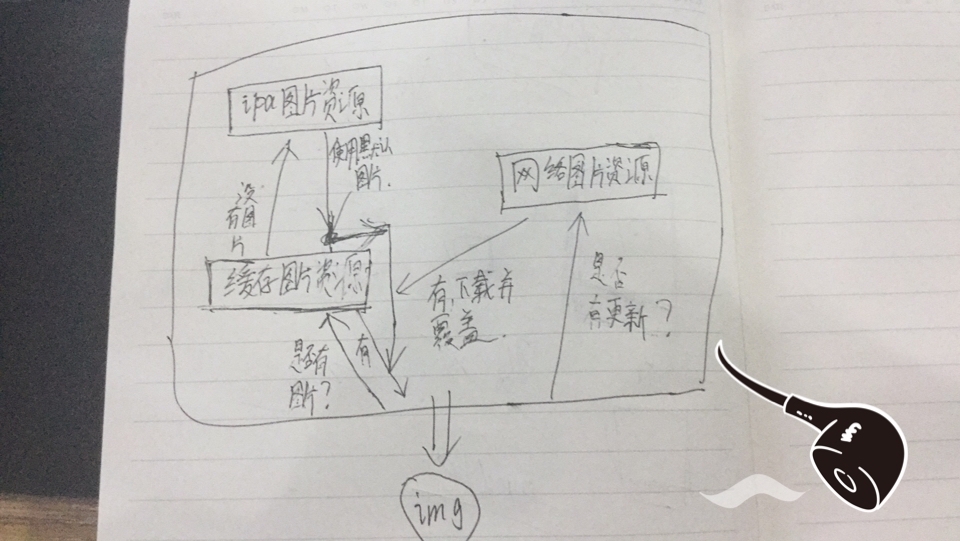 ipa图片资源
使用默认
图片.
网络图片资源
没
有图
片
缓存图片资源
有,下载并
覆盖.
是否
有更新?
是否有
图片?
有
img